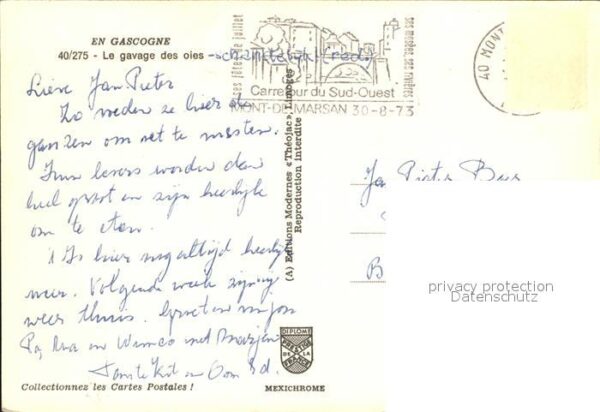 EN GASCOGNE
40/275 - Le gavage des oies - schandelijk! (red.)
Lieve Jan Pieter
Zo voeden ze hier de
ganzen om vet te mesten.
Hun levers worden dan
heel groot en zijn heerlijk
om te eten.
't Is hier nog altijd heerlijk
weer. Volgende week zijn wij
weer thuis. Groeten van jou
Pa, Ma en Wimco met Marjan
Tante Kit en Oom
Collectionnez les Cartes Postales !
ses fêtes de juillet
ses musées, ses rivières
Carrefour du Sud-Ouest
MONT-DE-MARSAN 30-8-73
40 MONT
(A) Editions Modernes «Théojac», Limoges
Reproduction Interdite
Jan Pieter
B
privacy protection
Datenschutz
DIPLOME
PRESTIGE
DE LA
FRANCE
MEXICHROME